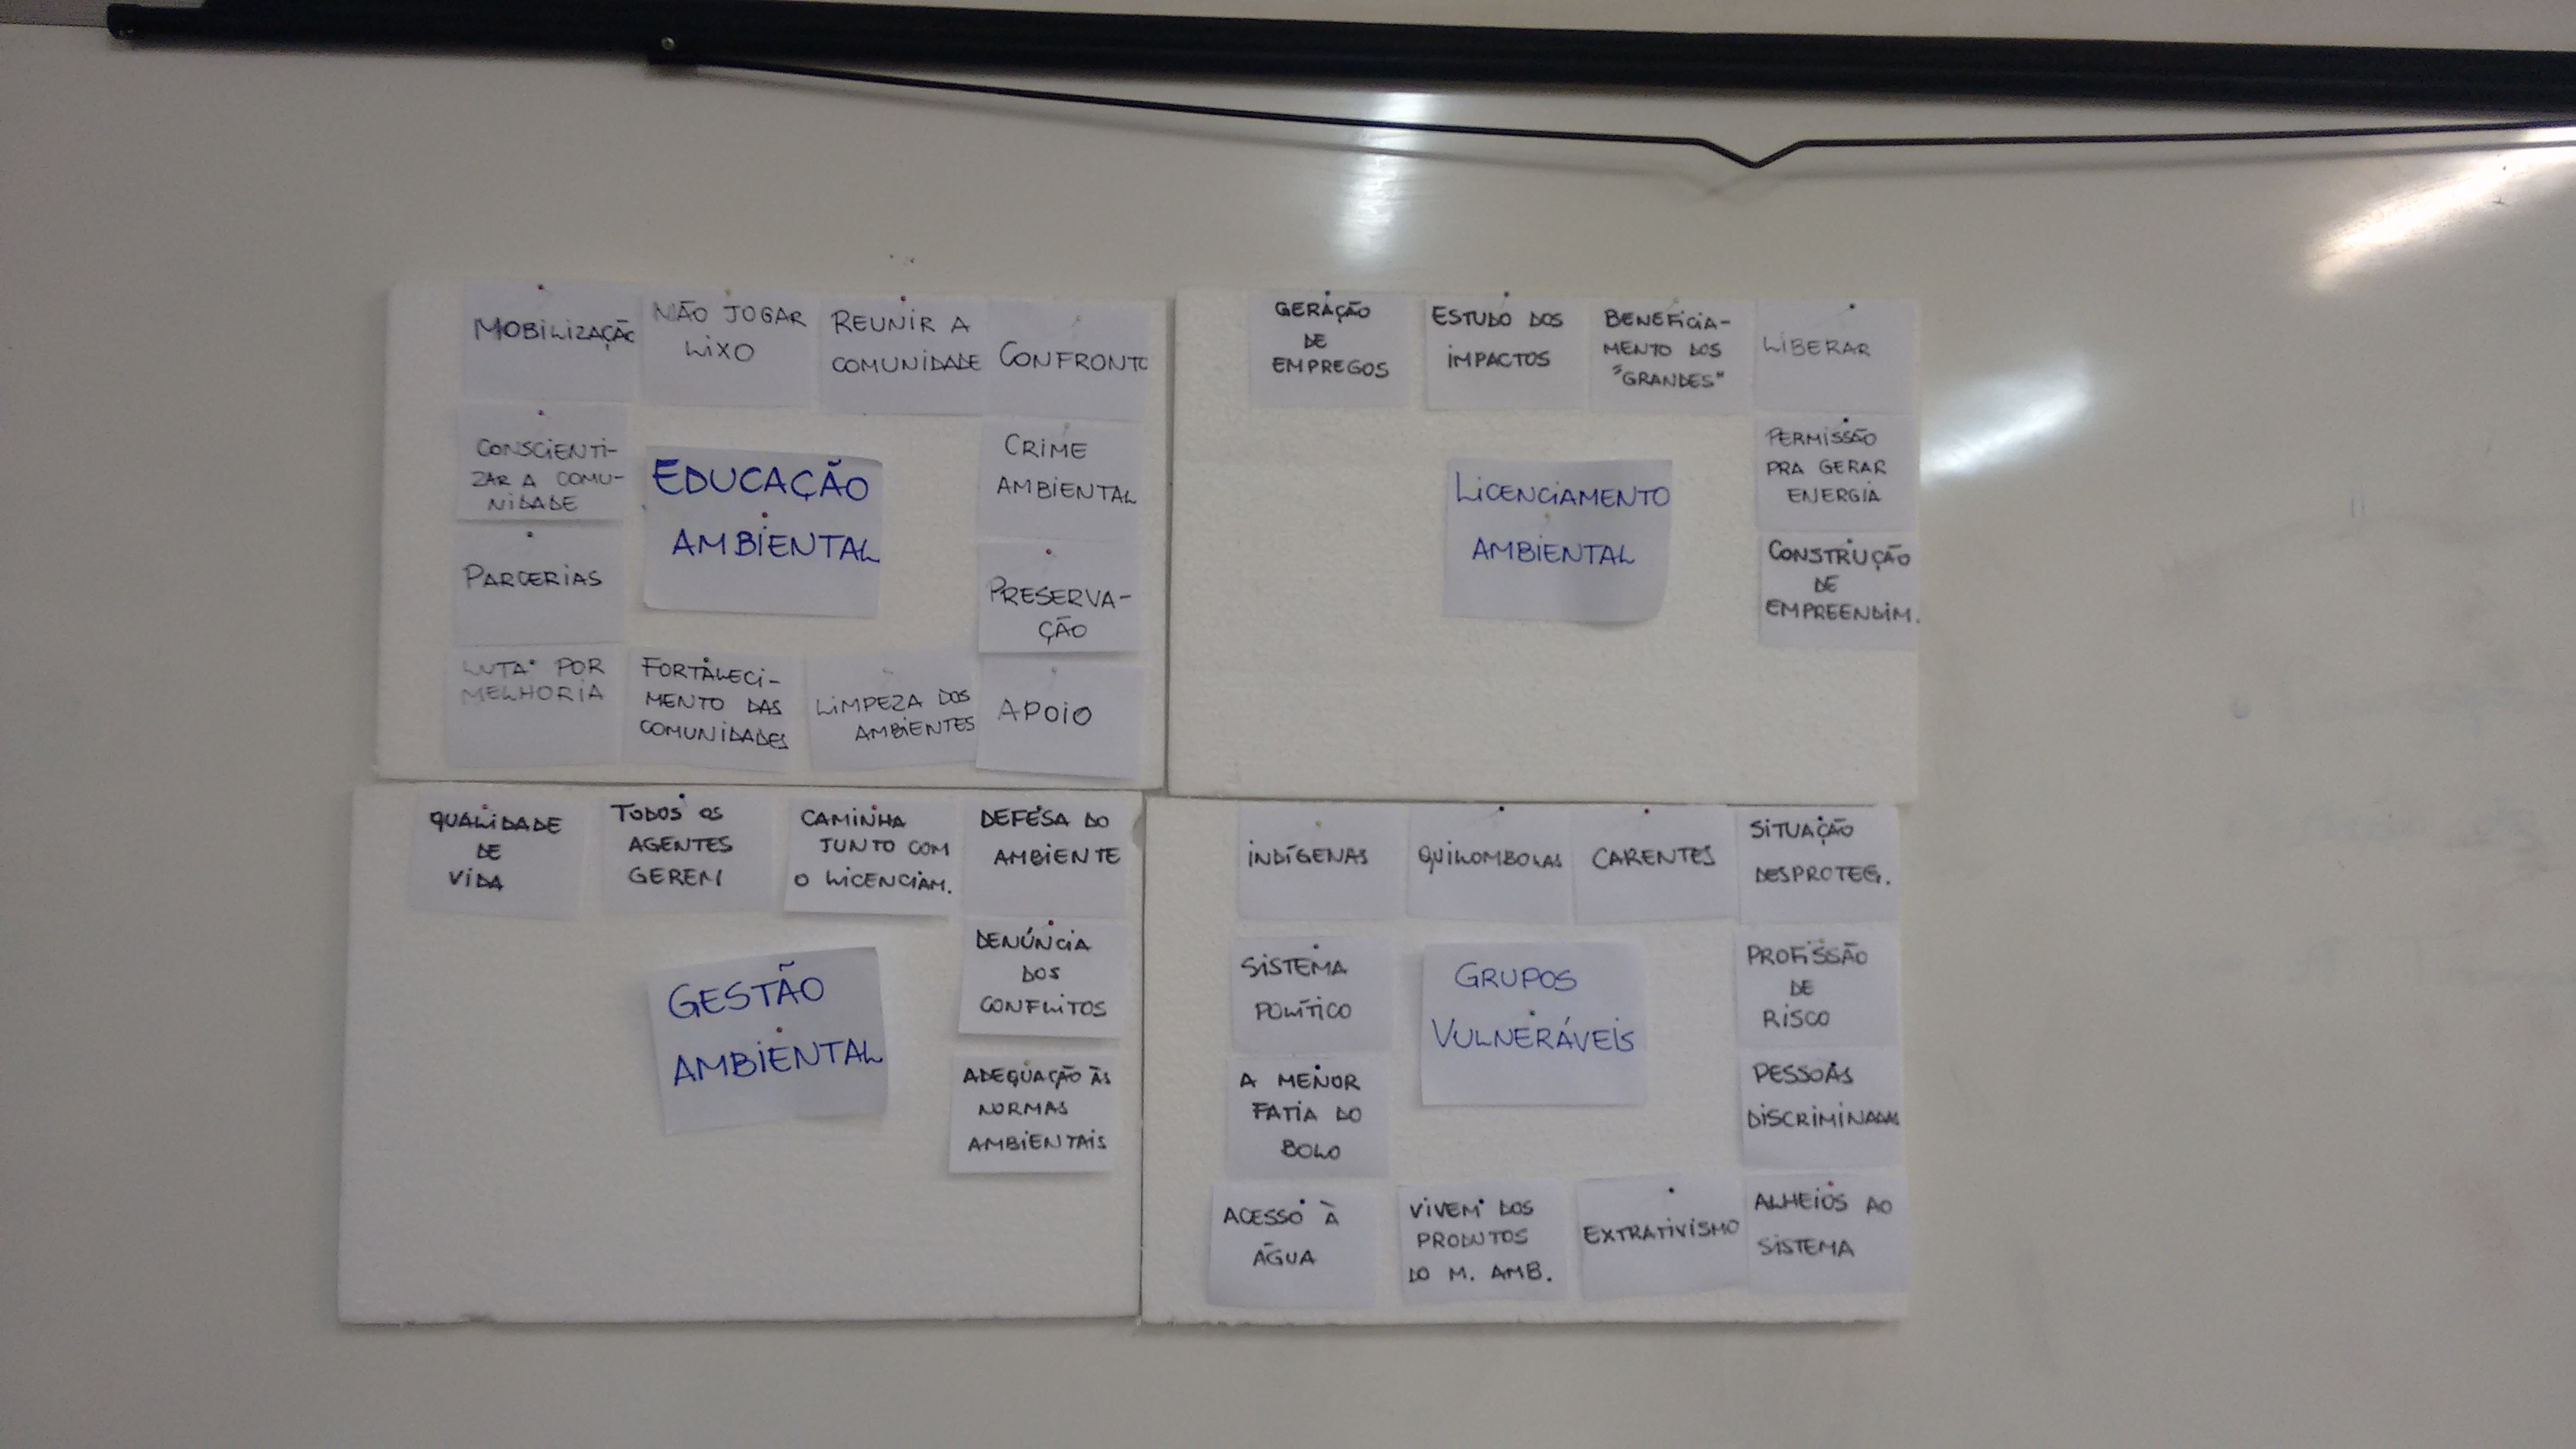 MOBILIZAÇÃO
NÃO JOGAR
LIXO
REUNIR A
COMUNIDADE
CONFRONTO
CONSCIENTI-
ZAR A COMU-
NIDADE
EDUCAÇÃO
AMBIENTAL
CRIME
AMBIENTAL
PARCERIAS
PRESERVA-
ÇÃO
LUTA POR
MELHORIA
FORTALECI-
MENTO DAS
COMUNIDADES
LIMPEZA DOS
AMBIENTES
APOIO
GERAÇÃO
DE
EMPREGOS
ESTUDO DOS
IMPACTOS
BENEFICIA-
MENTO DOS
"GRANDES"
LIBERAR
LICENCIAMENTO
AMBIENTAL
PERMISSÃO
PRA GERAR
ENERGIA
CONSTRUÇÃO
DE
EMPREENDIM.
QUALIDADE
DE
VIDA
TODOS OS
AGENTES
GEREM
CAMINHA
JUNTO COM
O LICENCIAM.
DEFESA DO
AMBIENTE
GESTÃO
AMBIENTAL
DENÚNCIA
DOS
CONFLITOS
ADEQUAÇÃO ÀS
NORMAS
AMBIENTAIS
INDÍGENAS
QUILOMBOLAS
CARENTES
SITUAÇÃO
DESPROTEG.
SISTEMA
POLÍTICO
GRUPOS
VULNERÁVEIS
PROFISSÃO
DE
RISCO
A MENOR
FATIA DO
BOLO
PESSOAS
DISCRIMINADAS
ACESSO À
ÁGUA
VIVEM DOS
PRODUTOS
DO M. AMB.
EXTRATIVISMO
ALHEIOS AO
SISTEMA